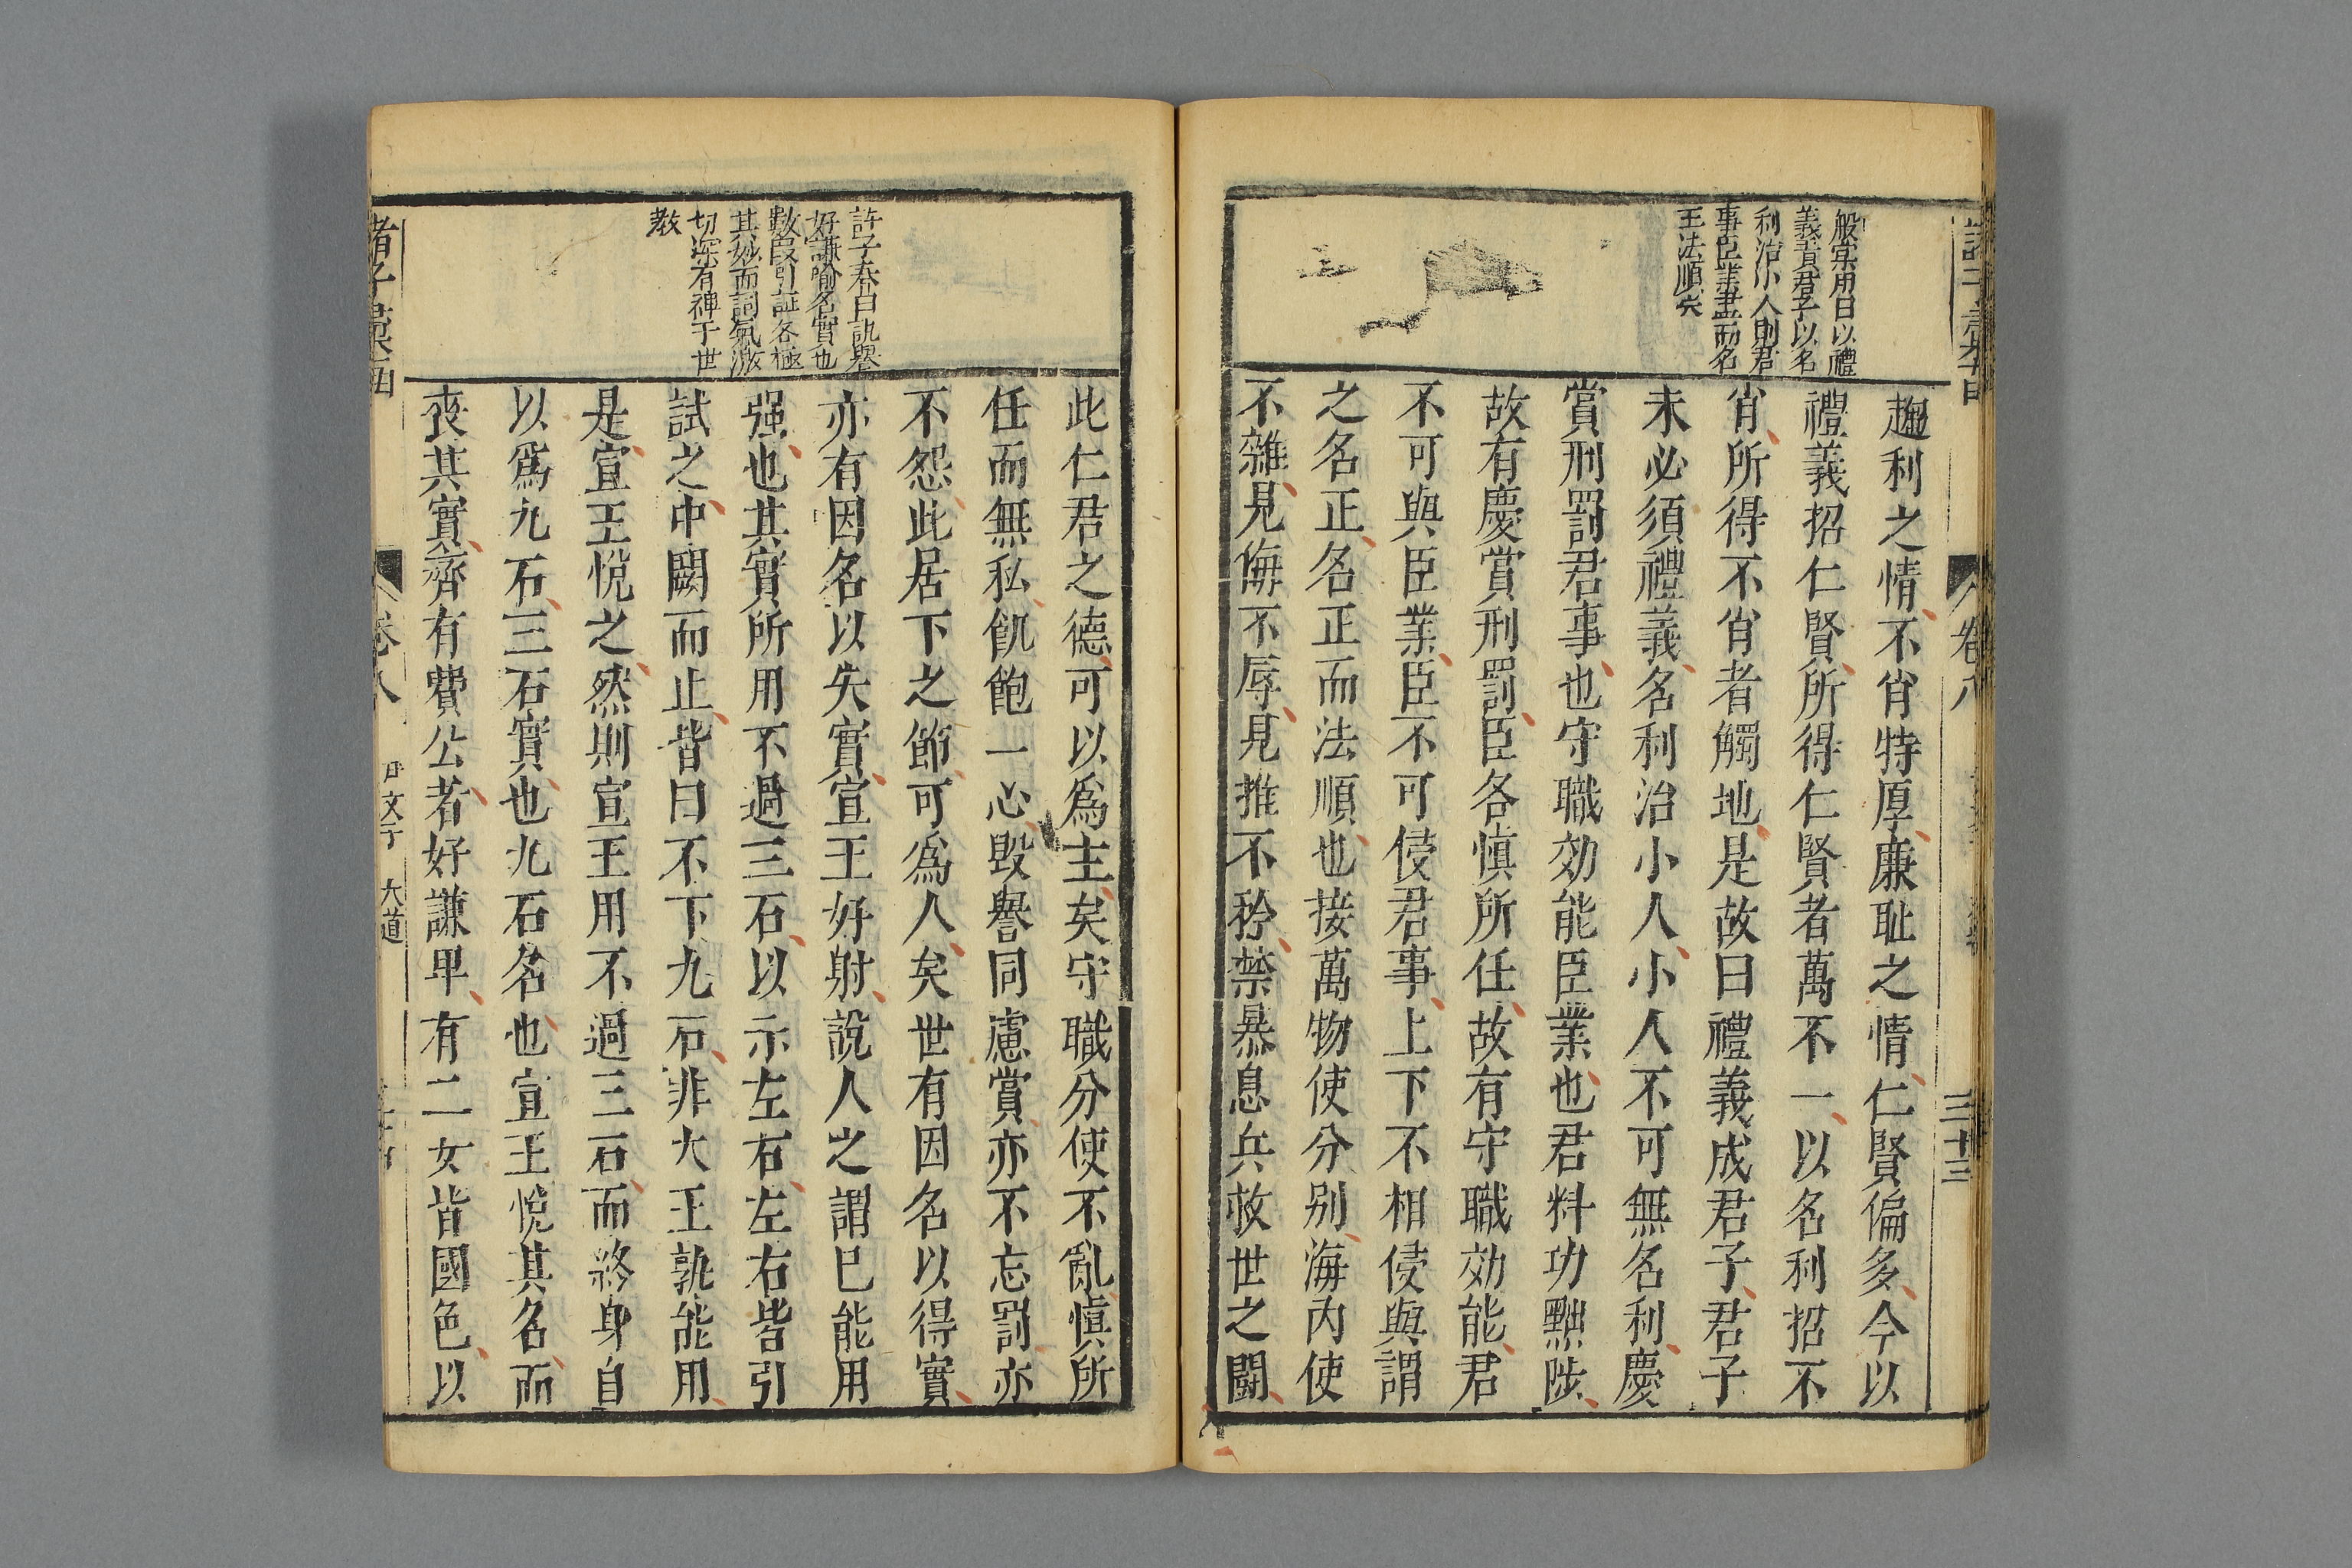 般宗用曰以禮
義責君子以名
利治小人則君
事臣業畫而名
王法順矣
趨利之情不肖特厚廉耻之情仁賢偏多今以
禮義招仁賢所得仁賢者萬不一以名利招不
肖所得不肖者觸地是故曰禮義成君子君子
未必須禮義名利治小人小人不可無名利慶
賞刑罰君事也守職効能臣業也君料功黜陟
故有慶賞刑罰臣各慎所任故有守職効能君
不可與臣業臣不可侵君事上下不相侵與謂
之名正名正而法順也接萬物使分别海内使
不雜見侮不辱見推不矜禁暴息兵救世之鬪
卷八
三十三
許子春曰訊舉
好謙喻名實也
數段引証各極
其妙而詞氣激
切深有裨于世
教
此仁君之德可以爲主矣守職分使不亂慎所
任而無私飢飽一心毀譽同慮賞亦不忘罰亦
不怨此居下之節可爲人矣世有因名以得實
亦有因名以失實宣王好射說人之謂己能用
强也其實所用不過三石以示左右左右皆引
試之中闕而止皆曰不下九石非大王孰能用
是宣王悅之然則宣王用不過三石而終身自
以爲九石三石實也九石名也宣王悅其名而
喪其實齊有黃公者好謙卑有二女皆國色以
諸子彙函
卷八
尹文子
大道